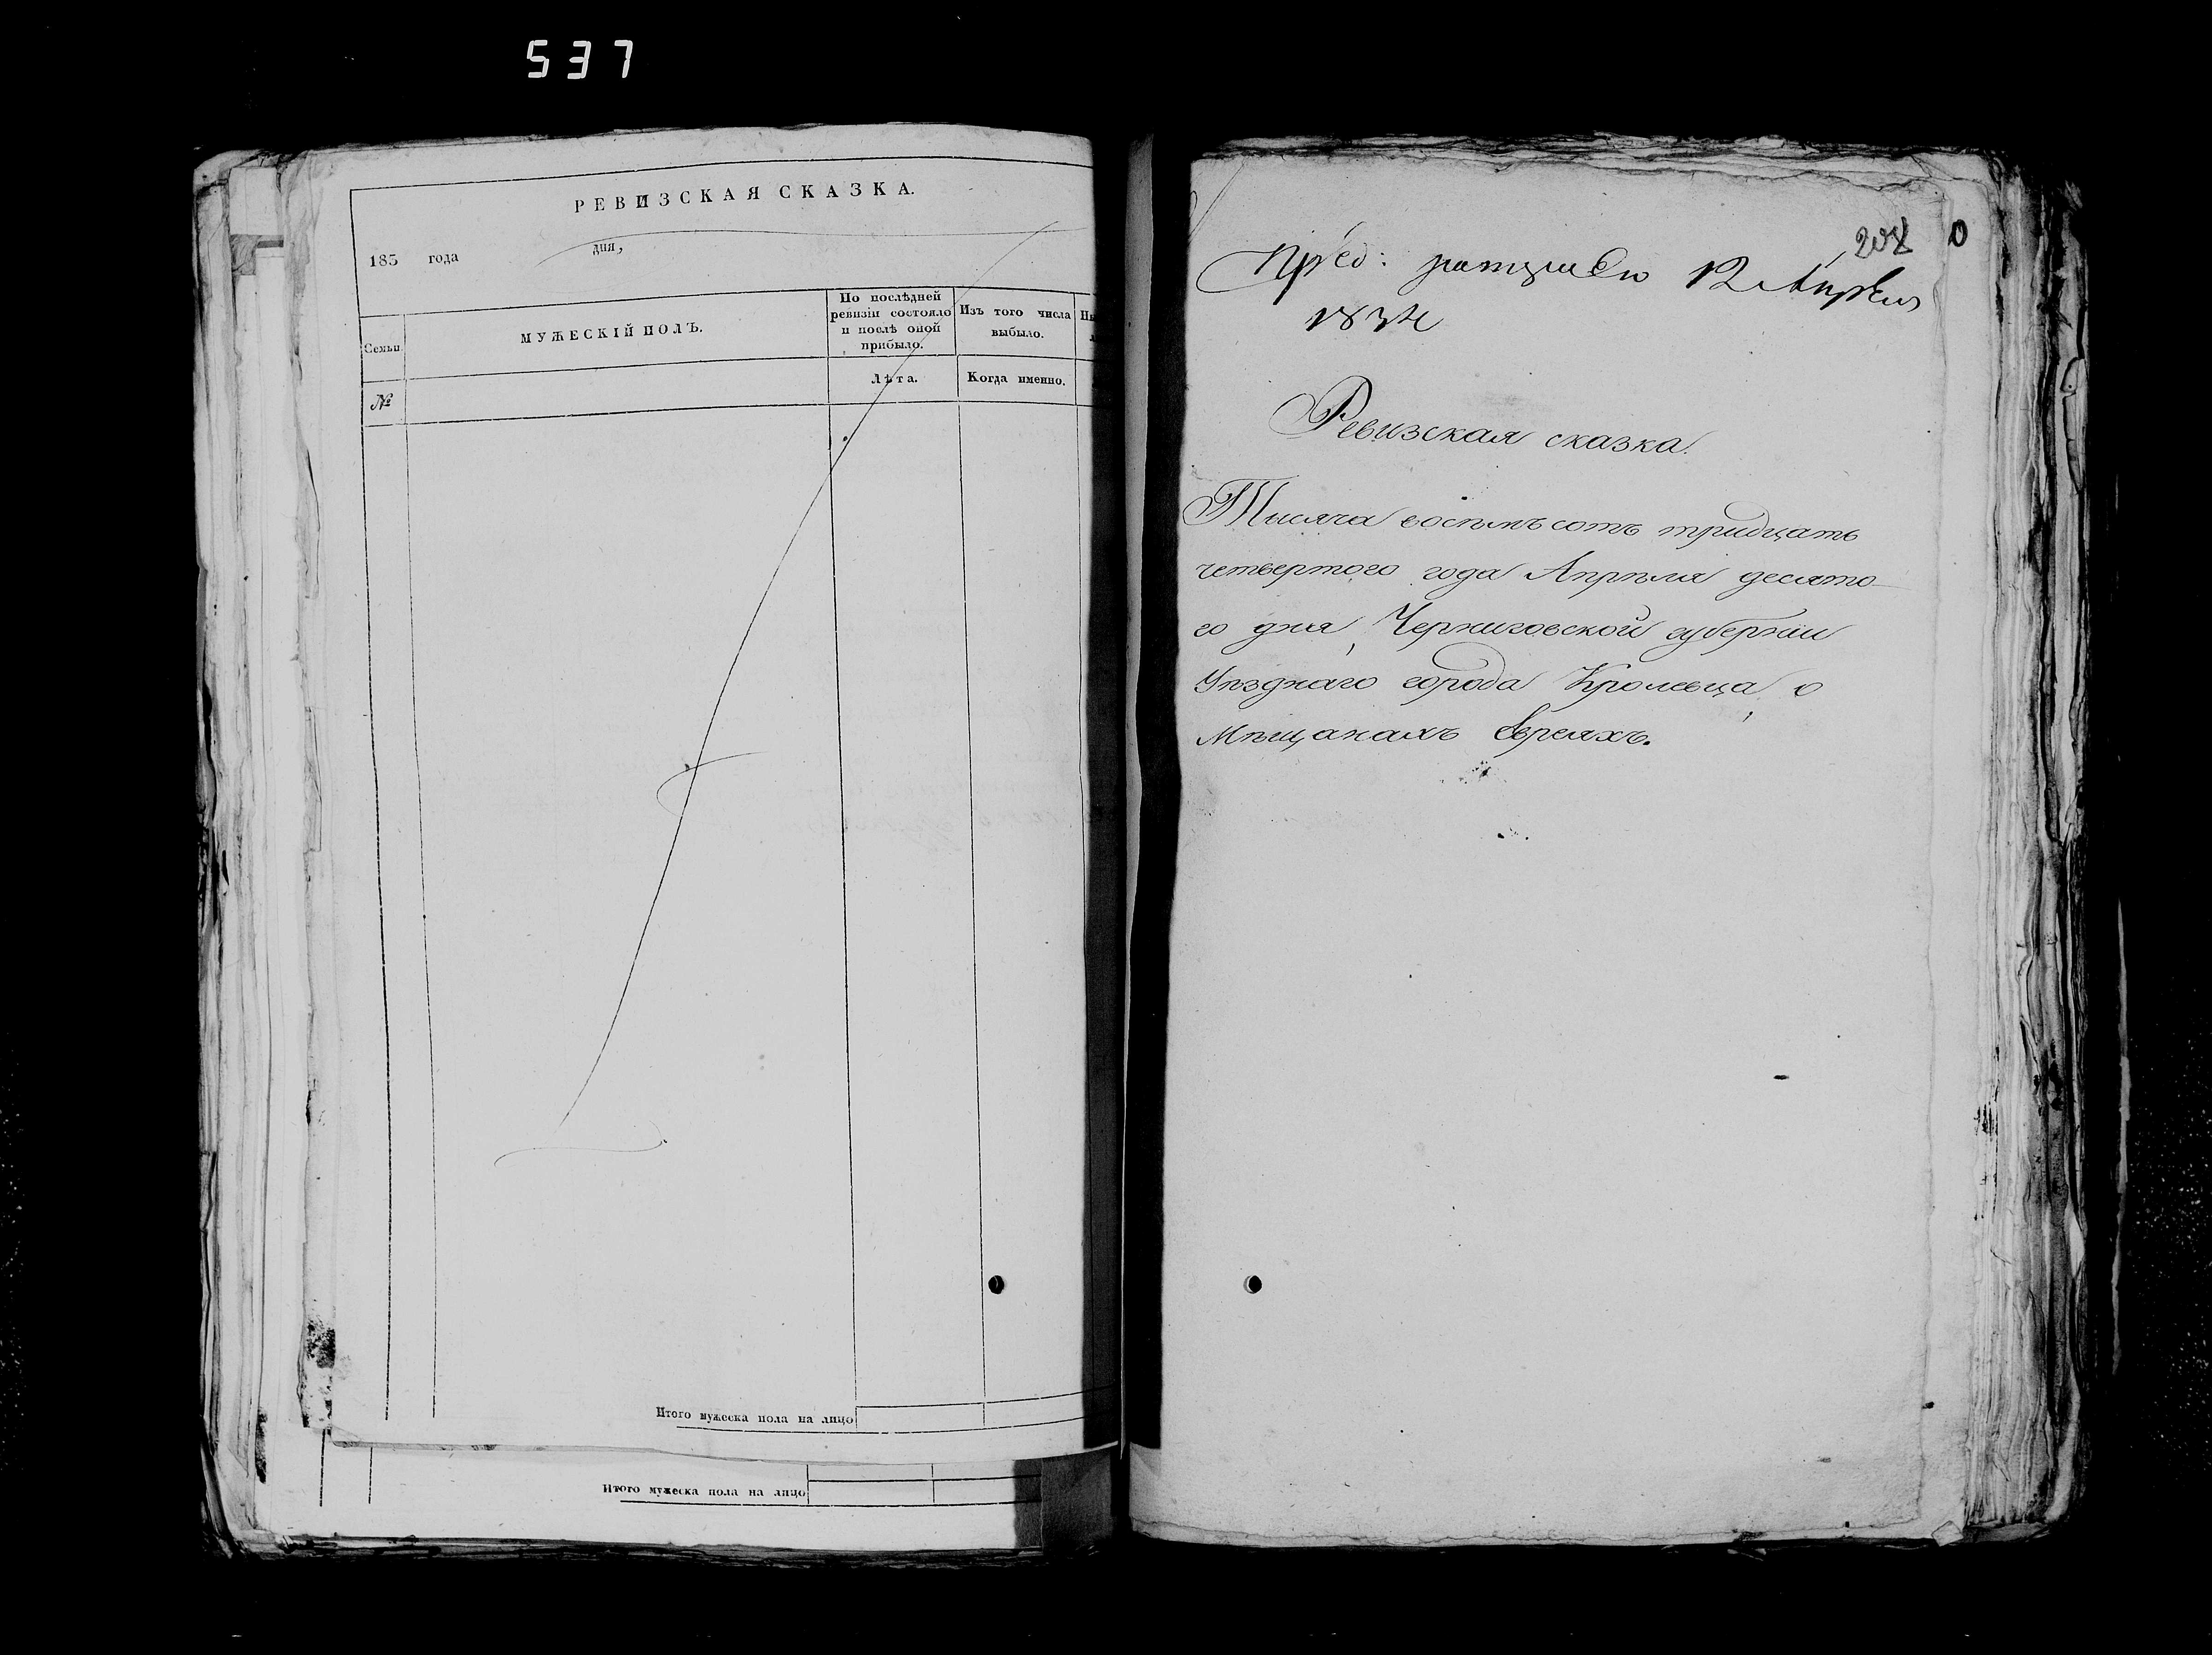 537
РЕВИЗСКАЯ СКАЗКА.
183 года дня,
Семьи
МУЖЕСКІЙ ПОЛЪ.
По послѣдней
ревизіи состояло
и послѣ оной
прибыло.
Изъ того числа
выбыло.
№
Лѣта.
Когда именно.
Итого мужеска пола на лицо
Итого мужеска пола на лицо
0
12 Апрѣля
1834
Ревизская сказка.
Тысяча восѣмъ сотъ тридцать
четвертого года Апрѣля десято
го дня, Черниговской губерніи
Уѣзднаго города Кролевца, о
Мѣщанахъ Евреяхъ.